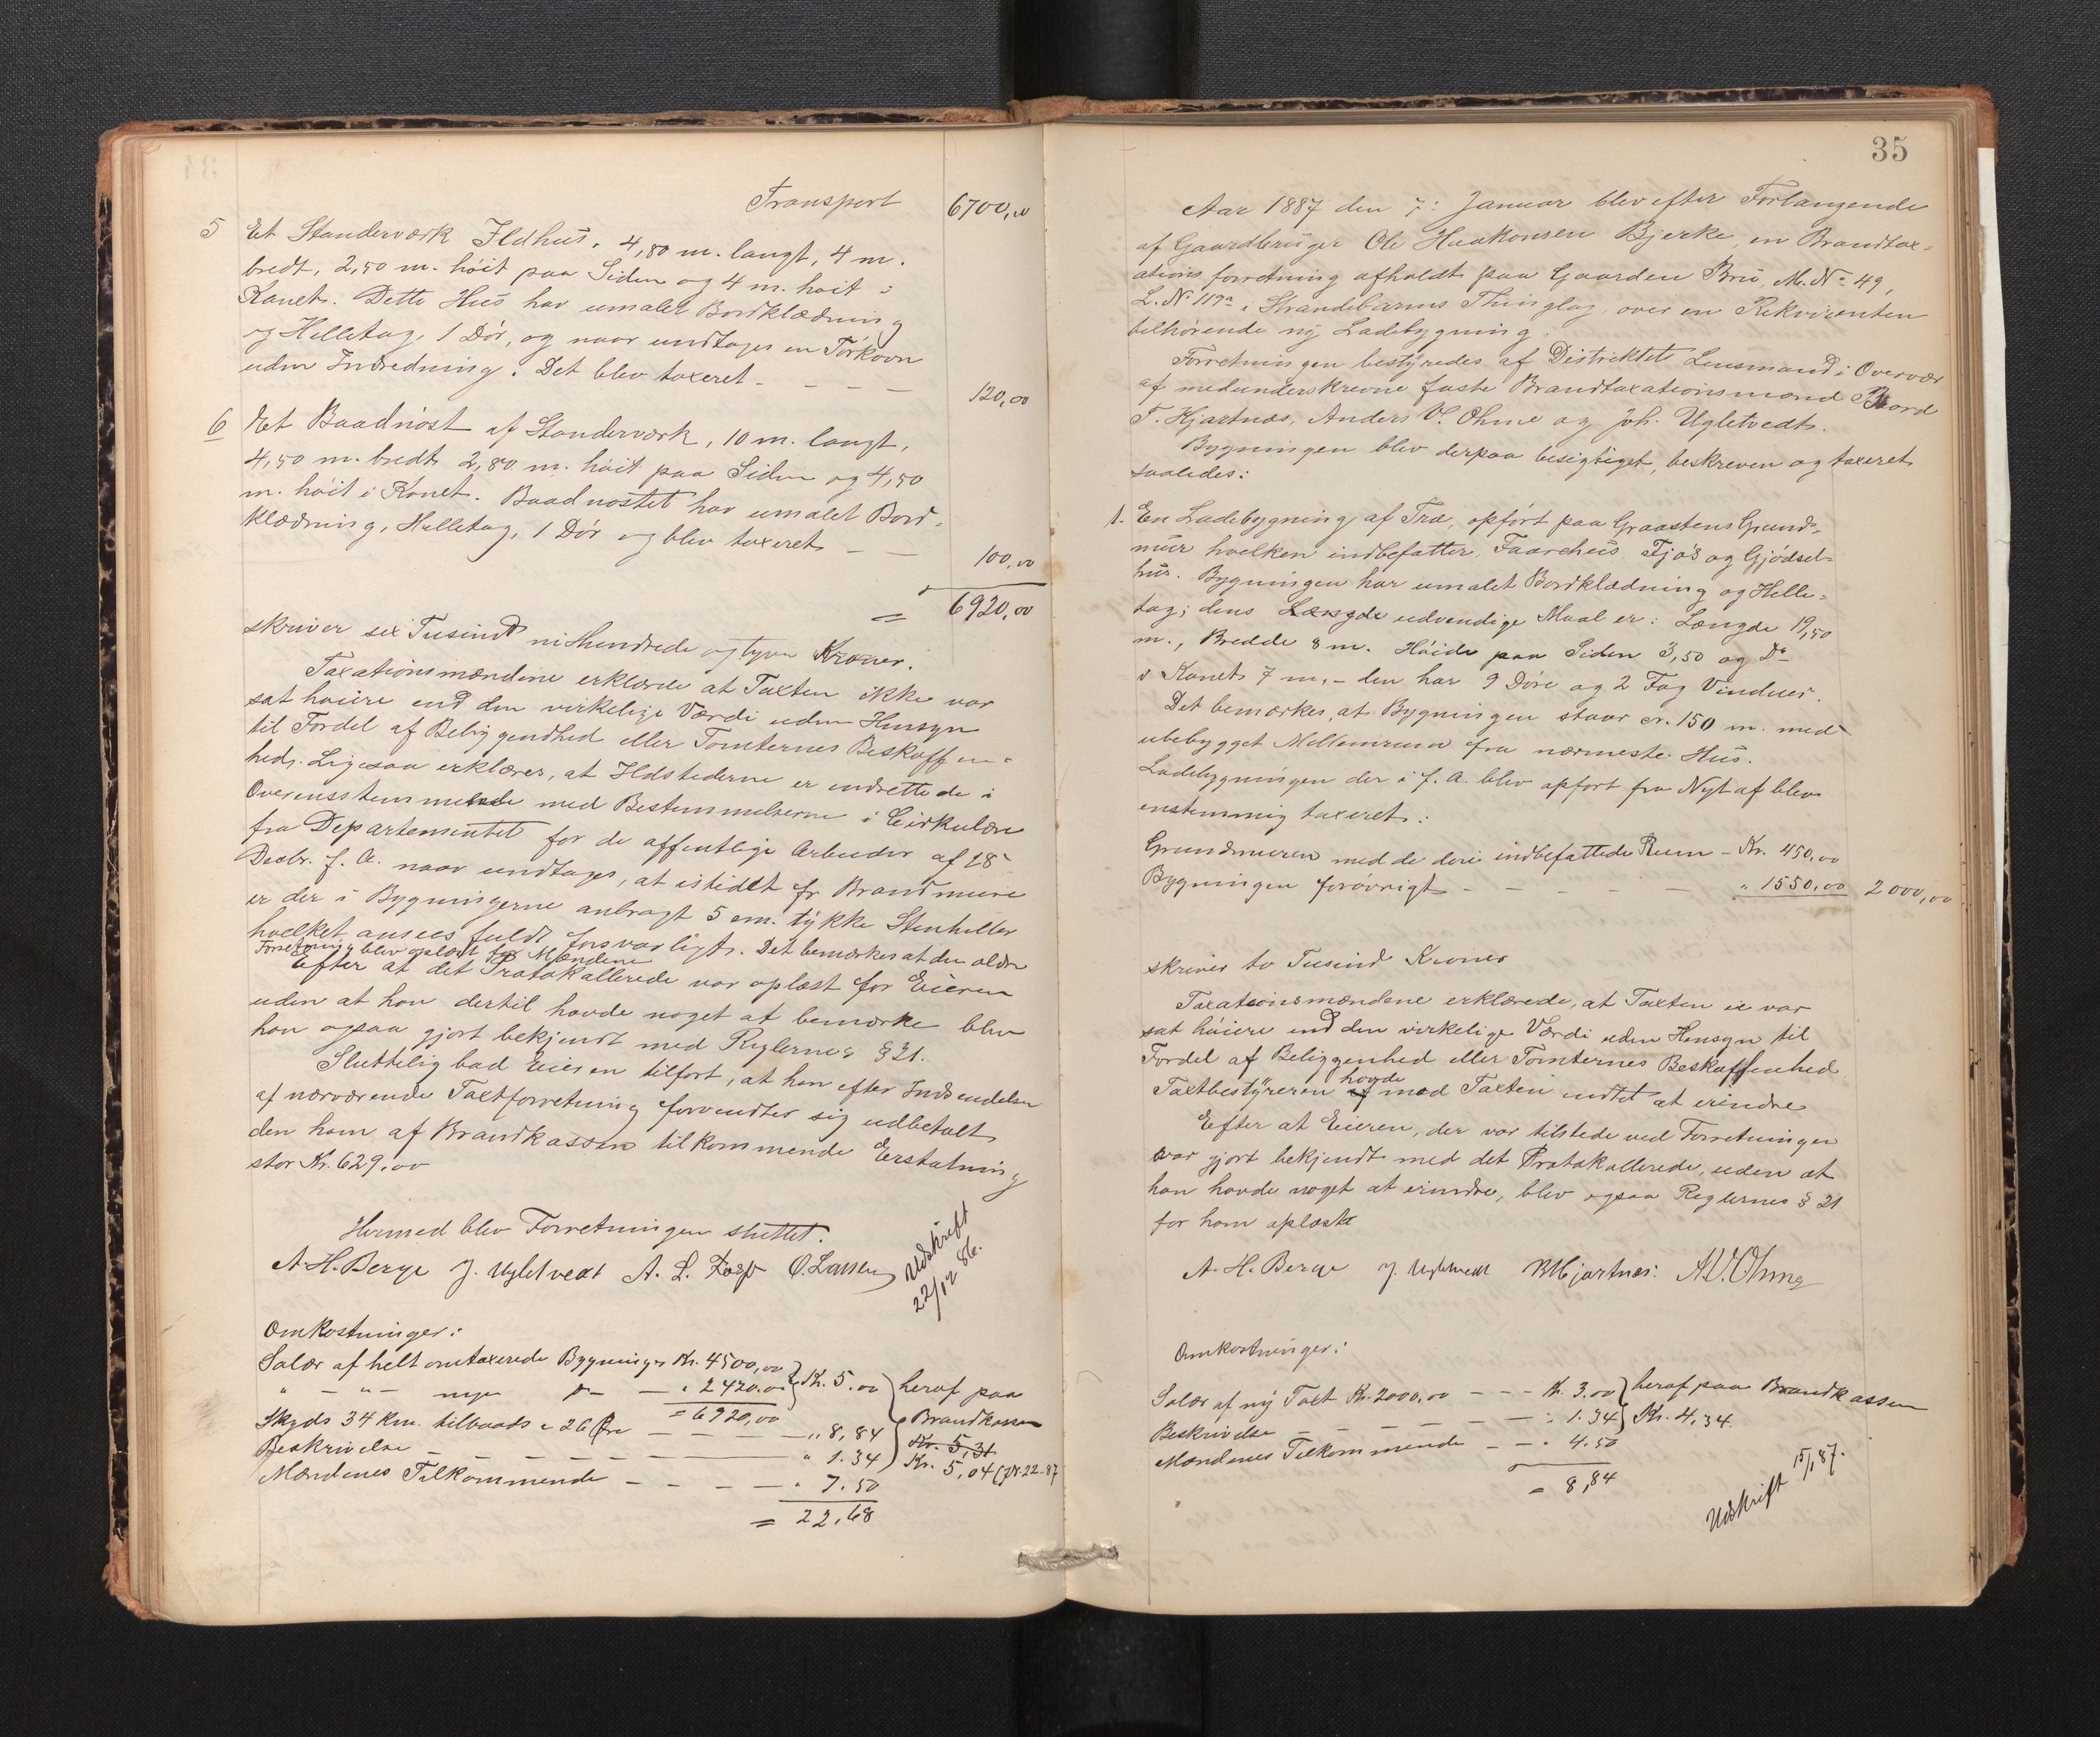 Transport 6700,00
5 Et Standerværk Ildhus, 4,80 m. langt, 4 m.
bredt, 2,50 m. høit paa Siden og 4 m. høit i
Kanet. Dette Hus har umalet Bordklædning
og Helletag, 1 Dör, og naar undtages en Törkovn
uden Indredning. Det blev taxeret - - - - 120,00
6 Et Baadnöst af Standerværk, 10 m. langt,
4,50 m. bredt 2,80 m. höit paa Siden og 4,50
m. höit i Kanet. Baadnöstet har umalet Bord-
klædning, Helletag, 1 Dör og blev taxeret - - 100,00
= 6920,00
skriver sex Tusind nihundrede og tyve Kroner.
Taxationsmændene erklærede at Taxten ikke var
sat høiere end den virkelige Værdi uden Hensyn
til Fordel af Beliggendhed eller Tomternes Beskaffen-
hed. Ligesaa erklæres, at Ildstederne er indrettede i
Overensstemmelse med Bestemmelserne i Cirkulære
fra Departementet for de offentlige Arbeider af 28
Decbr. f. A. naar undtages, at istedet for Brandmure
er der i Bygningerne anbragt 5 cm. tykke Stenheller
hvelket ansees fuldt forsvarligt. Det bemærkes at den ældre
Forretning blev oplæst for Mændene
Efter at det Protokollerede var oplæst for Eieren
uden at han dertil havde noget at bemærke blev
han ogsaa gjort bekjendt med Reglernes § 21.
Sluttelig bad Eieren tilført, at han efter Indsendelse
af nærværende Taxtforretning forventer sig udbetalt
den ham af Brandkassen tilkommende Erstatning
stor Kr. 629,00
Hermed blev Forretningen sluttet.
A. H. Berge J. Ugletvedt A. L. O. Larsen
Udskrift
22/12 86.
Omkostninger:
Salær af helt omtaxerede Bygninger Kr. 4500,00 } Kr. 5.00 } heraf paa
" - " - nye do - " 2420.00
= 6920,00 Brandkassen
Skyds 34 Km. tilbaads a 26 Øre - - - - " 8,84 Kr. 5,31
Beskrivelse - - - - - " 1.34 Kr. 5,04
Mændenes Tilkommende - - - - " 7.50
= 22,68
35
Aar 1887 den 7: Januar blev efter Forlangende
af Gaardbruger Ole Haakonsen Bjerke, en Brandtax-
ations forretning afholdt paa Gaarden Bru, M. No 49,
L. No 119a i Strandebarms Thinglag over en Rekvirenten
tilhørende ny Ladebygning.
Forretningen bestyredes af Distriktets Lensmand i Overvær
af medunderskrevne faste Brandtaxationsmænd Baard
T. Hjartnæs, Anders V. Ohme og Joh. Ugletvedt.
Bygningen blev derpaa besigtiget, beskreven og taxeret
saaledes:
1. En Ladebygning af Træ, opfört paa Graastens Grund-
mur hvelken indbefatter, Faarehus, Fjøs og Gjödsel-
hus. Bygningen har umalet Bordklædning og Helle-
tag; dens Længde udvendige Maal er: Længde 19,50
m., Bredde 8 m. Höide paa Siden 3,50 og Do
i Kanet 7 m, - den har 9 Döre og 2 Fag Vinduer.
Det bemærkes, at Bygningen staar cr. 150 m. med
ubebygget Mellemrum fra nærmeste Hus.
Ladebygningen der i f. A. blev opført fra Nyt af blev
enstemmig taxeret:
Grundmuren med de deri indbefattede Rum - Kr. 450,00
Bygningen forövrigt - - - - - " 1550,00 2000,00
skriver to Tusind Kroner
Taxationsmændene erklærede, at Taxten ei var
sat höiere end den virkelige Værdi uden Hensyn til
Fordel af Beliggenhed eller Tomternes Beskaffenhed
Taxtbestyreren havde mod Taxten intet at erindre
Efter at Eieren, der var tilstede ved Forretningen
var gjort bekjendt med det Protokollerede, uden at
han havde noget at erindre, blev ogsaa Reglernes § 21
for ham oplæst
A. H. Berge J. Ugletvedt B Hjartnæs. A. V. Ohme
Omkostninger:
Salær af ny Taxt Kr. 2000,00 - - - Kr. 3.00 } heraf paa Brandkassen
Beskrivelse - - - - - " 1.34 } Kr. 4,34.
Mændenes Tilkommende - - " 4.50
= 8,84
Udskrift 15/1 87.